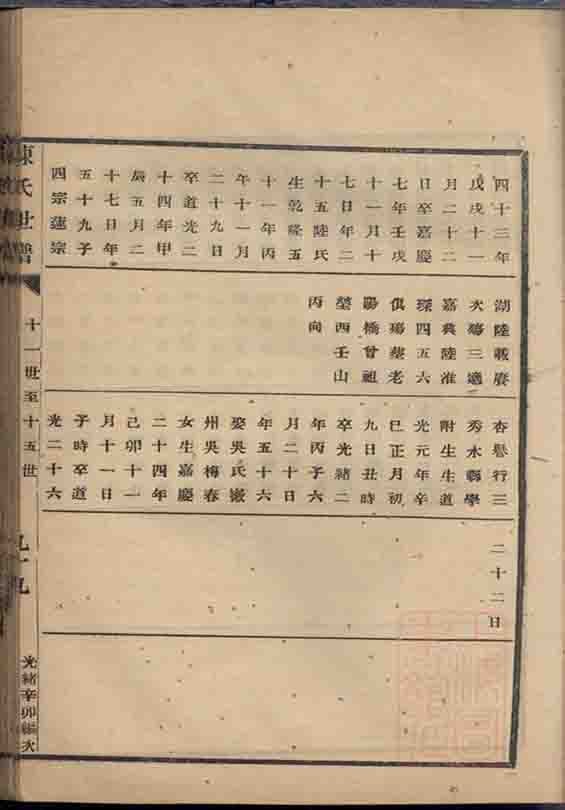 四十三年
戊戌十一
月二十二
日卒嘉慶
七年壬戌
十一月十
七日年二
十五陸氏
生乾隆五
十一年丙
午十一月
二十九日
卒道光二
十四年甲
辰五月二
十七日年
五十九子
四宗蓮宗
湖陸載賡
次殤三適
嘉興陸淮
琛四五六
俱殤葬老
陽橋曾祖
塋西壬山
丙向
杏懸行三
秀水縣學
附生生道
光元年辛
巳正月初
九日丑時
卒光緒二
年丙子六
月二十日
年五十六
娶吳氏徽
州吳梅春
女生嘉慶
二十四年
己卯十一
月十一日
子時卒道
光二十六
二十二日
陳氏世譜
十一世至十五世
九十九
光緒辛卯編次